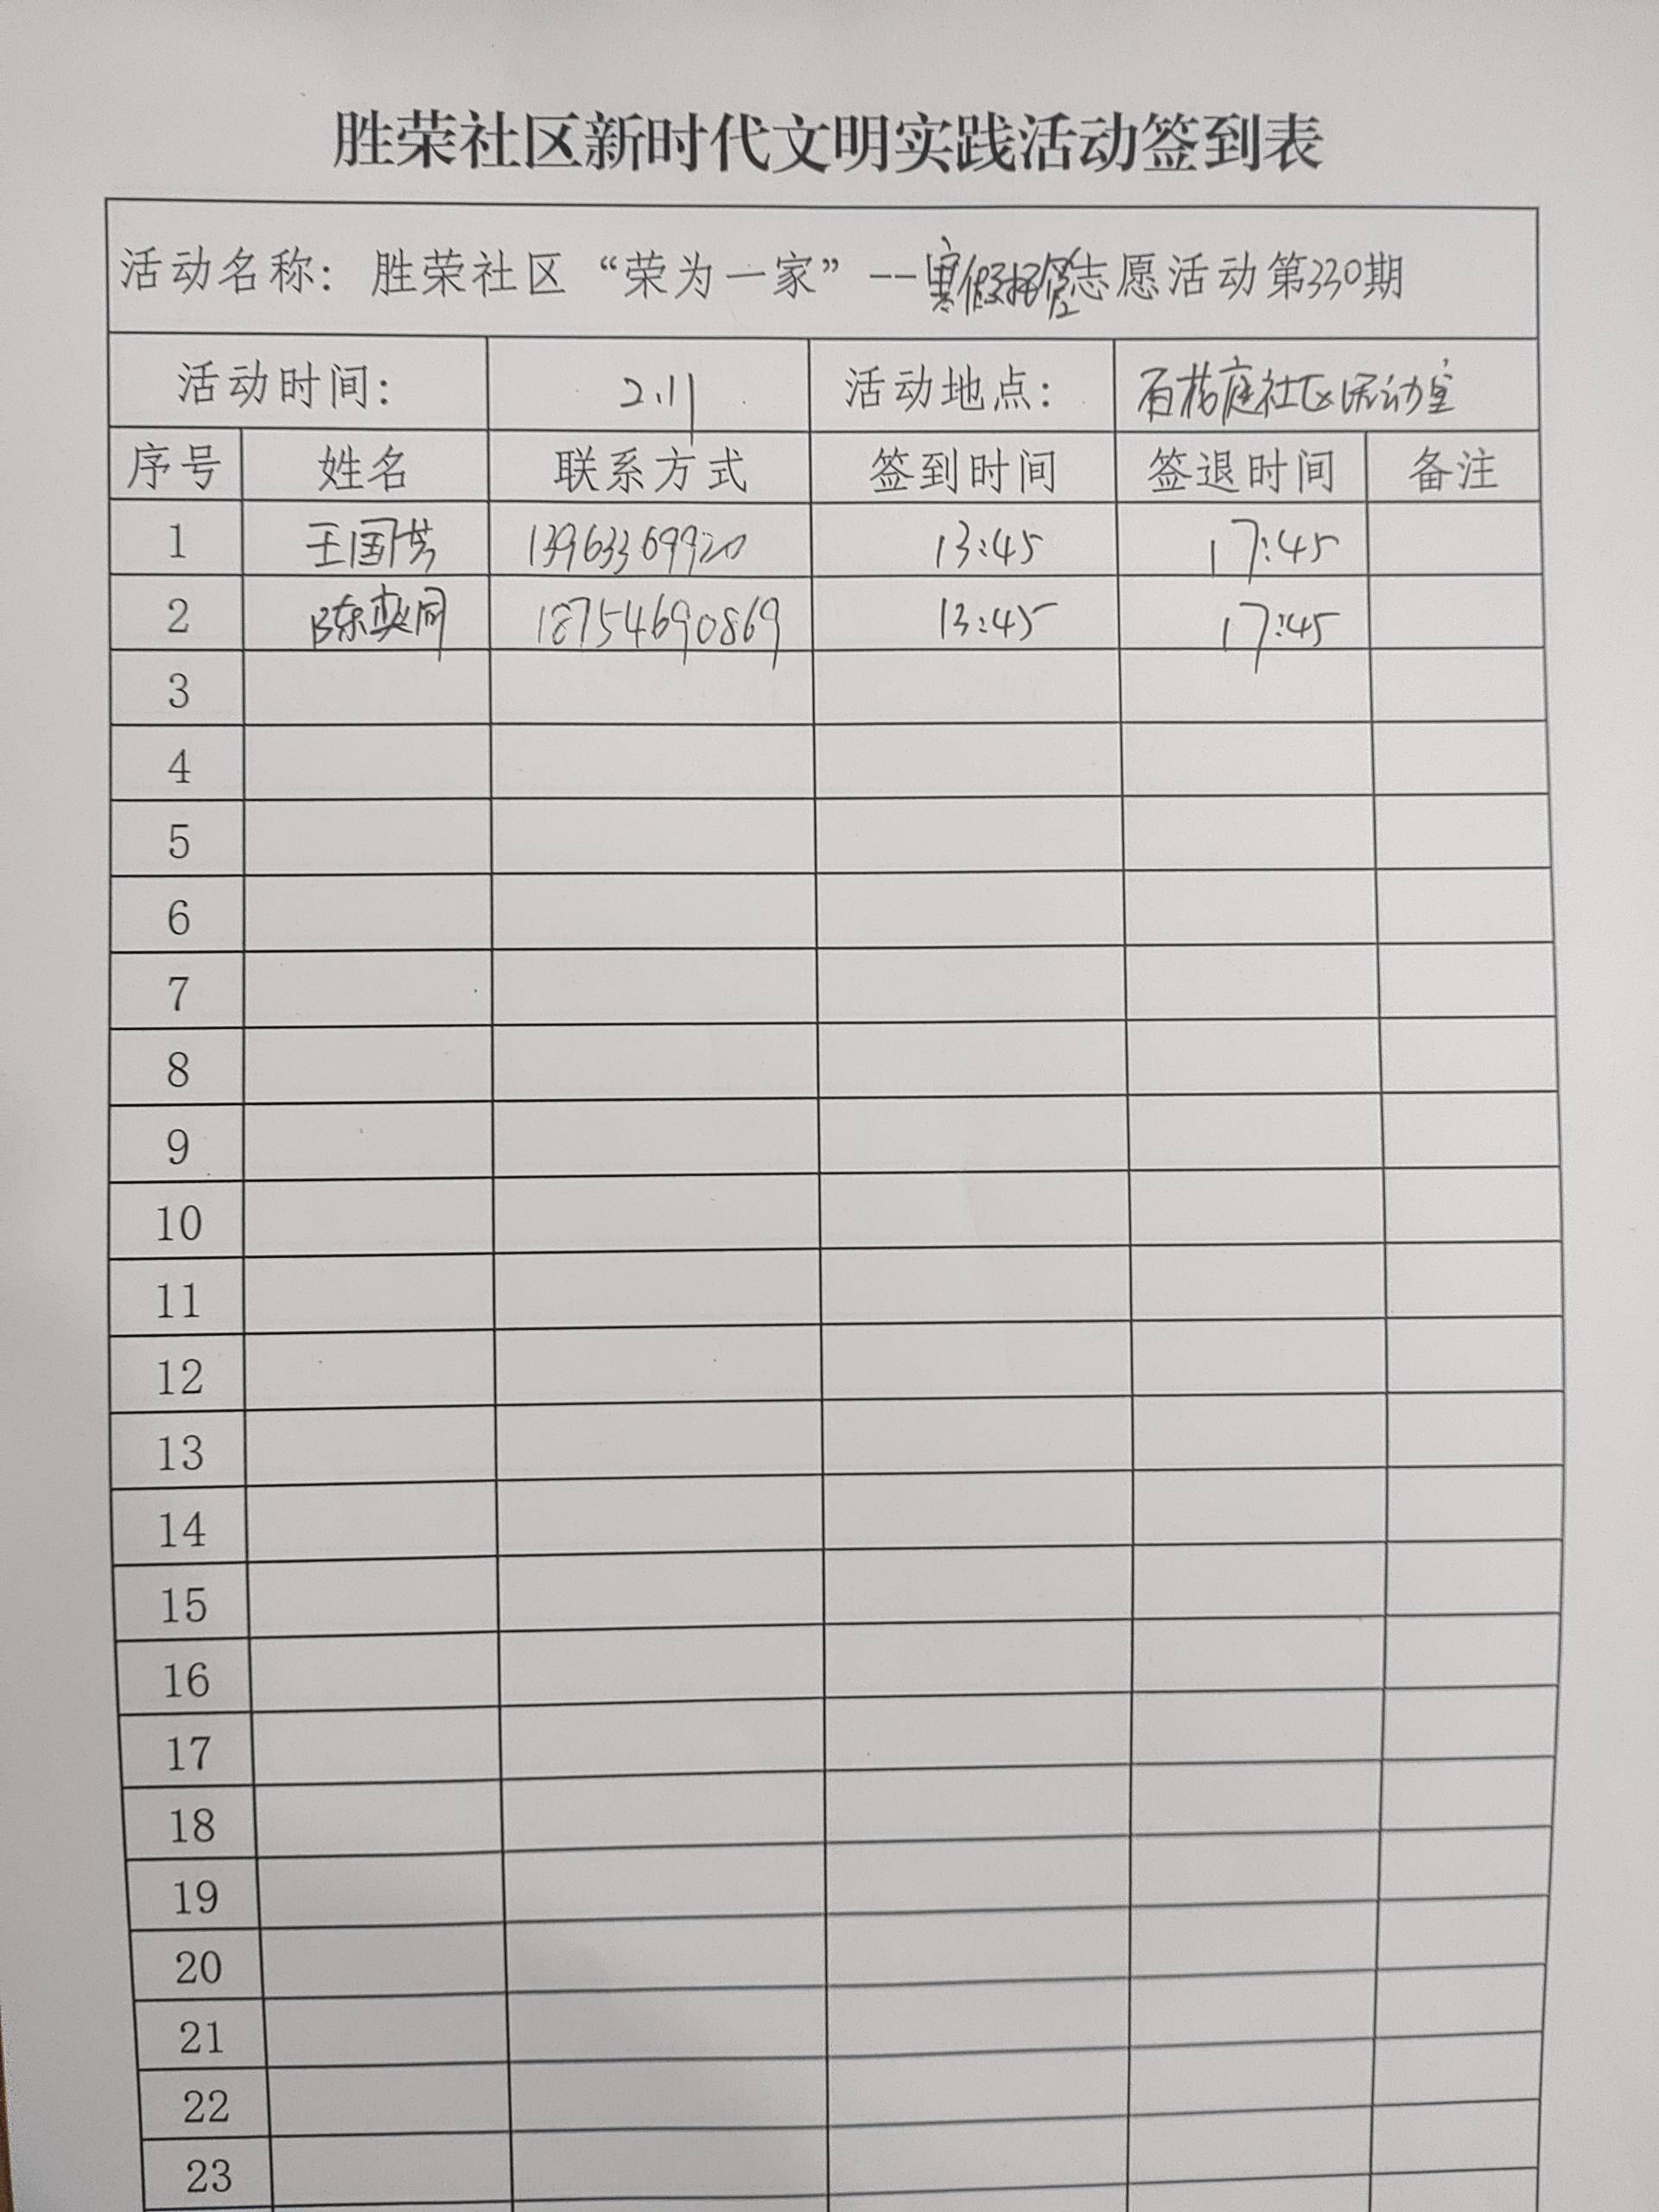 胜荣社区新时代文明实践活动签到表
活动名称：胜荣社区“荣为一家”--寒假托管志愿活动第330期
活动时间： 2.11 活动地点： 社区活动室
序号 姓名 联系方式 签到时间 签退时间 备注
1 王国芳 13963369920 13:45 17:45
2 陈奕同 18754690869 13:45 17:45
3
4
5
6
7
8
9
10
11
12
13
14
15
16
17
18
19
20
21
22
23